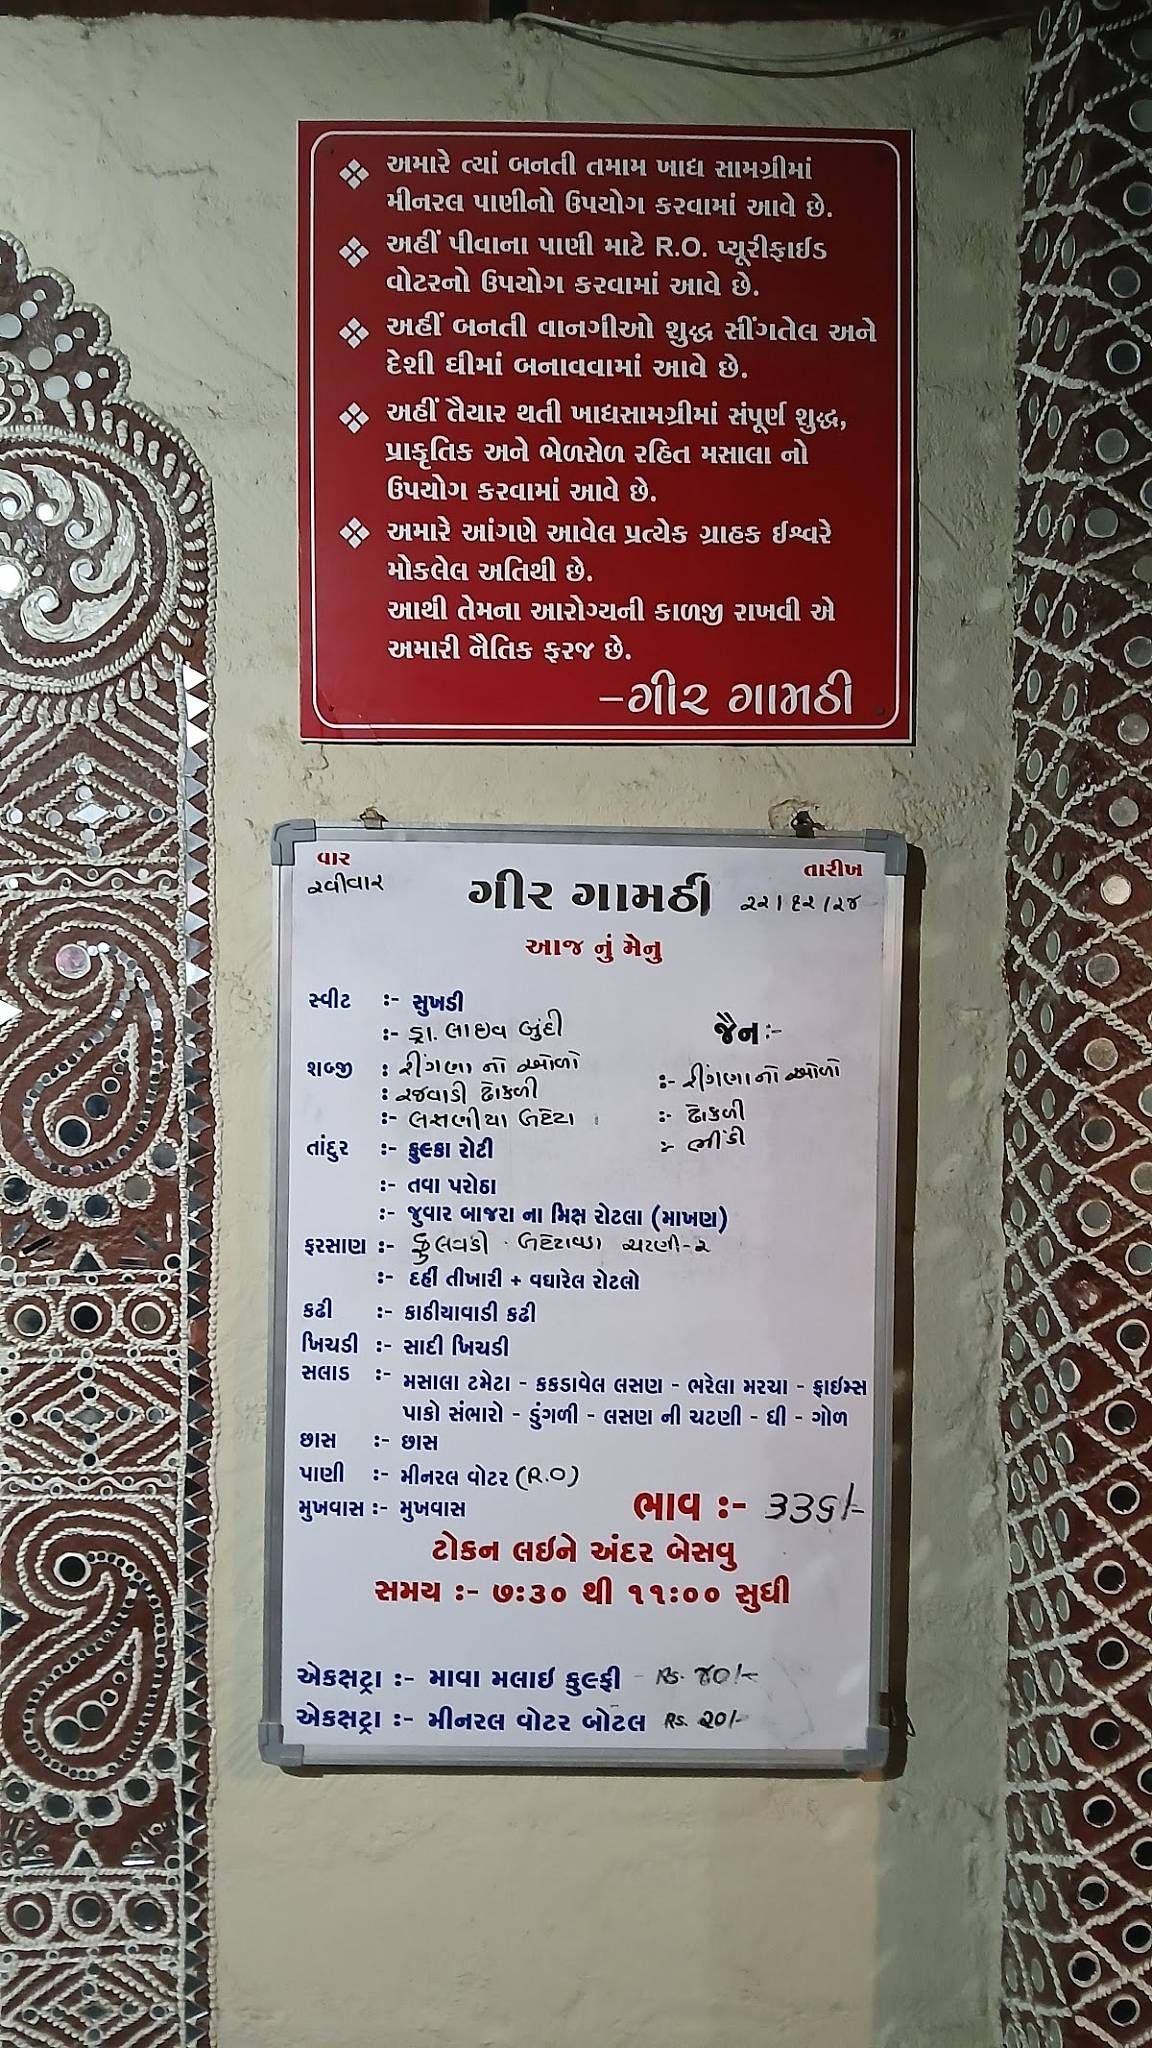 ❖ અમારે ત્યાં બનતી તમામ ખાદ્ય સામગ્રીમાં
મીનરલ પાણીનો ઉપયોગ કરવામાં આવે છે.
❖ અહીં પીવાના પાણી માટે R.O. પ્યૂરીફાઈડ
વોટરનો ઉપયોગ કરવામાં આવે છે.
❖ અહીં બનતી વાનગીઓ શુદ્ધ સીંગતેલ અને
દેશી ઘીમાં બનાવવામાં આવે છે.
❖ અહીં તૈયાર થતી ખાદ્યસામગ્રીમાં સંપૂર્ણ શુદ્ધ,
પ્રાકૃતિક અને ભેળસેળ રહિત મસાલા નો
ઉપયોગ કરવામાં આવે છે.
❖ અમારે આંગણે આવેલ પ્રત્યેક ગ્રાહક ઈશ્વરે
મોકલેલ અતિથી છે.
આથી તેમના આરોગ્યની કાળજી રાખવી એ
અમારી નૈતિક ફરજ છે.
–ગીર ગામઠી
વાર તારીખ
રવીવાર ગીર ગામઠી ૨૨/૧૨/૨૪
આજ નું મેનુ
સ્વીટ :- સુખડી
:- ડ્રા. લાઇવ બુંદી જૈન :-
શબ્જી : રીંગણા નો ઓળો :- રીંગણાનો ઓળો
: રજવાડી ઢોકળી :- ઢોકળી
:- લસણીયા બટેટા :- ભીંડી
તાંદુર :- ફુલ્કા રોટી
:- તવા પરોઠા
:- જુવાર બાજરા ના મિક્ષ રોટલા (માખણ)
ફરસાણ :- ફુલવડી બટેટાવડા ચટણી-૨
:- દહીં તીખારી + વઘારેલ રોટલો
કઢી :- કાઠીયાવાડી કઢી
ખિચડી :- સાદી ખિચડી
સલાડ :- મસાલા ટમેટા - કકડાવેલ લસણ - ભરેલા મરચા - ફ્રાઈમ્સ
પાકો સંભારો - ડુંગળી - લસણ ની ચટણી - ઘી - ગોળ
છાસ :- છાસ
પાણી :- મીનરલ વોટર (R.O)
મુખવાસ :- મુખવાસ ભાવ :- ૩૩૬/-
ટોકન લઇને અંદર બેસવુ
સમય :- ૭:૩૦ થી ૧૧:૦૦ સુધી
એકસટ્રા :- માવા મલાઇ કુલ્ફી - Rs. ૪૦/-
એકસટ્રા :- મીનરલ વોટર બોટલ Rs. ૨૦/-